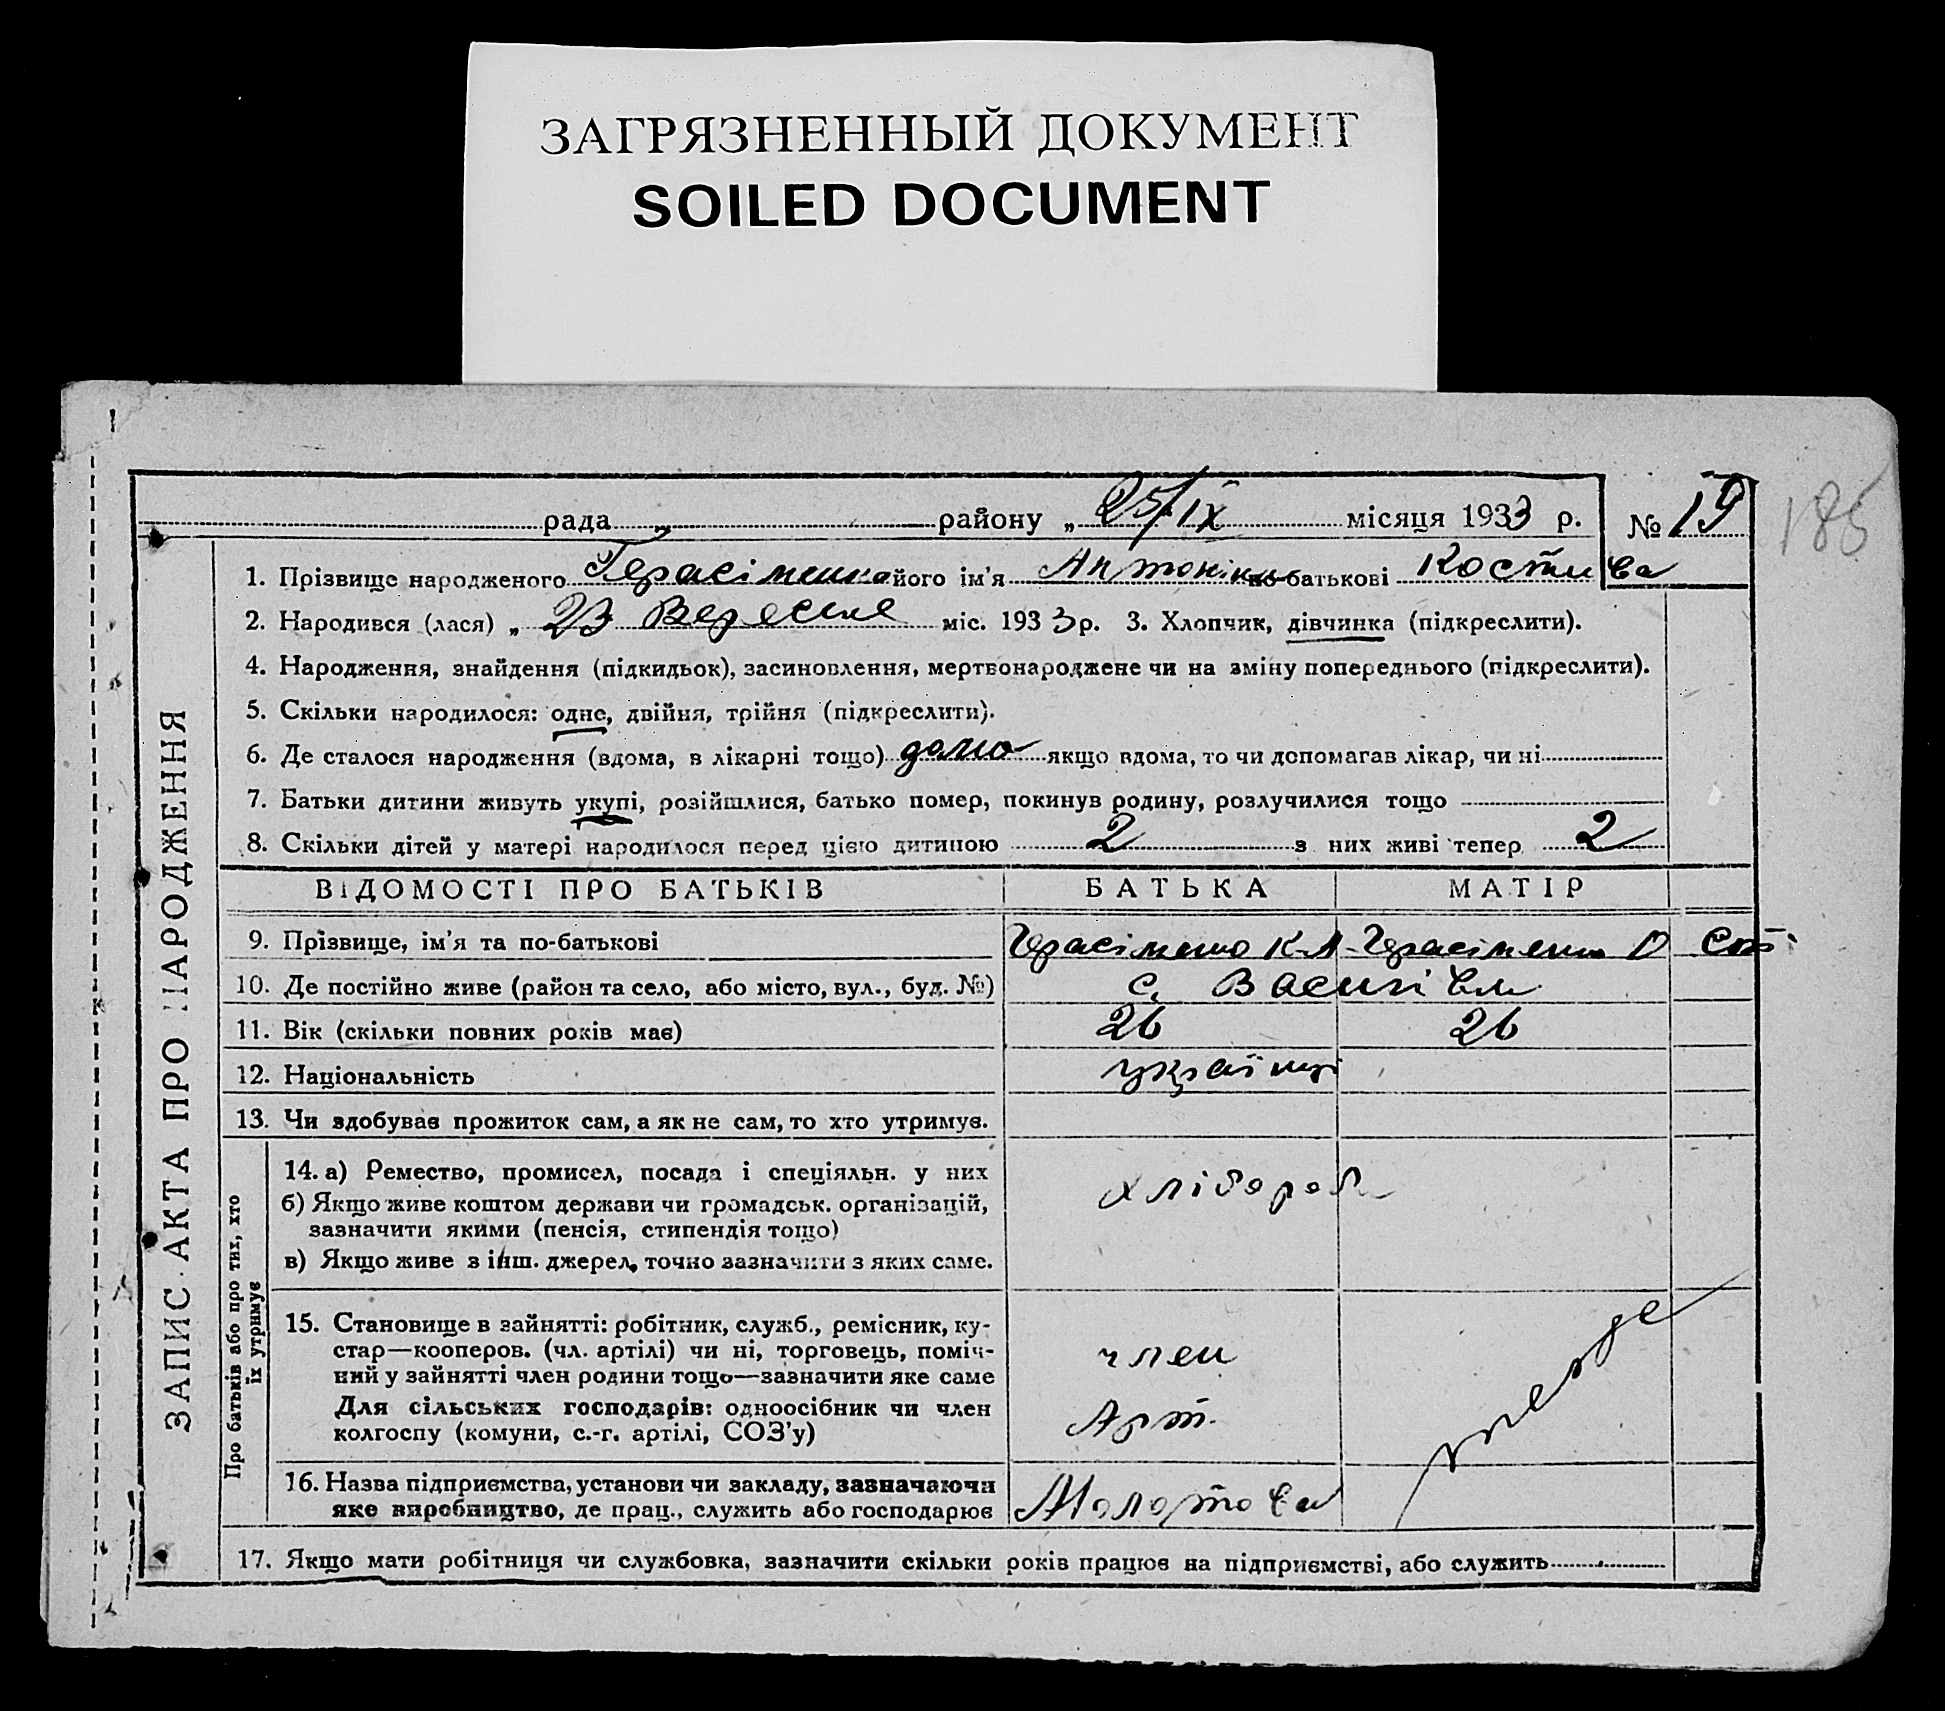 ЗАГРЯЗНЕННЫЙ ДОКУМЕНТ
SOILED DOCUMENT
рада „ району „ 25/IX місяця 1933 р. № 19 185
ЗАПИС АКТА ПРО НАРОДЖЕННЯ
1. Прізвище народженого Герасіменко його ім'я Антоніна по-батькові Костива
2. Народився (лася) „ 23 Вересня міс. 1933 р. 3. Хлопчик, дівчинка (підкреслити).
4. Народження, знайдення (підкидьок), засиновлення, мертвонароджене чи на зміну попереднього (підкреслити).
5. Скільки народилося: одне, двійня, трійня (підкреслити).
6. Де сталося народження (вдома, в лікарні тощо) дома якщо вдома, то чи допомагав лікар, чи ні
7. Батьки дитини живуть укупі, розійшлися, батько помер, покинув родину, розлучилися тощо
8. Скільки дітей у матері народилося перед цією дитиною 2 з них живі тепер 2
ВІДОМОСТІ ПРО БАТЬКІВ БАТЬКА МАТІР
9. Прізвище, ім'я та по-батькові Герасіменко К Л Герасіменко О
10. Де постійно живе (район та село, або місто, вул., буд. №) с. Василівка
11. Вік (скільки повних років має) 26 26
12. Національність українці
13. Чи здобуває прожиток сам, а як не сам, то хто утримує.
Про батьків або про тих, хто
їх утримує
14. а) Ремество, промисел, посада і спеціяльн. у них хлібороби
б) Якщо живе коштом держави чи громадськ. організацій,
зазначити якими (пенсія, стипендія тощо)
в) Якщо живе з інш. джерел, точно зазначити з яких саме.
15. Становище в зайнятті: робітник, служб., ремісник, ку-
стар—кооперов. (чл. артілі) чи ні, торговець, поміч-
ний у зайнятті член родини тощо—зазначити яке саме член
Для сільських господарів: одноосібник чи член
колгоспу (комуни, с.-г. артілі, СОЗ'у) Арт.
16. Назва підприємства, установи чи закладу, зазначаючи
яке виробництво, де прац., служить або господарює Молотова
17. Якщо мати робітниця чи службовка, зазначити скільки років працює на підприємстві, або служить